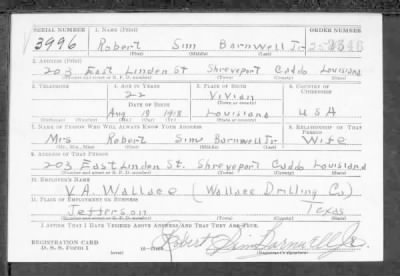 SERIAL NUMBER 1. NAME (Print) ORDER NUMBER
3996 Robert Sim Barnwell Jr.
(First) (Middle) (Last)
2. ADDRESS (Print)
203 East Linden St Shreveport Caddo Louisiana
(Number and street or R. F. D. number) (Town) (County) (State)
3. TELEPHONE 4. AGE IN YEARS 5. PLACE OF BIRTH 6. COUNTRY OF CITIZENSHIP
22 Vivian
DATE OF BIRTH (Town or county)
Aug 19 1918 Louisiana USA
(Exchange) (Number) (Mo.) (Day) (Yr.) (State or country)
7. NAME OF PERSON WHO WILL ALWAYS KNOW YOUR ADDRESS 8. RELATIONSHIP OF THAT PERSON
Mrs Robert Sim Barnwell Jr. Wife
(Mr., Mrs., Miss) (First) (Middle) (Last)
9. ADDRESS OF THAT PERSON
203 East Linden St. Shreveport Caddo Louisiana
(Number and street or R. F. D. number) (Town) (County) (State)
10. EMPLOYER'S NAME
V.A. Wallace (Wallace Drilling Co)
11. PLACE OF EMPLOYMENT OR BUSINESS
Jefferson Texas
(Number and street or R. F. D. number) (Town) (County) (State)
I AFFIRM THAT I HAVE VERIFIED ABOVE ANSWERS AND THAT THEY ARE TRUE.
REGISTRATION CARD
D. S. S. Form 1 Robert Sim Barnwell Jr.
(Registrant's signature)